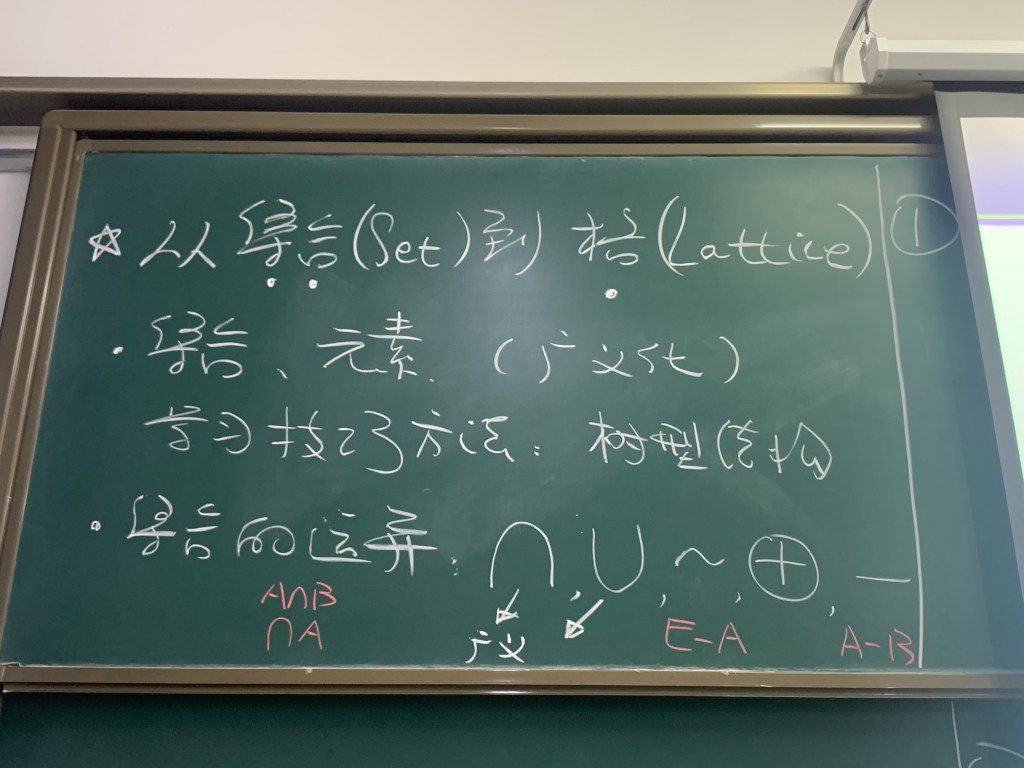 ☆ 从集合(Set)到格(Lattice) ①
· 集合、元素.(广义St)
学习技巧方法:树型结构
· 集合的运算:∩,∪,~,⊕,—
A∩B
∩A 广义 E-A A-B